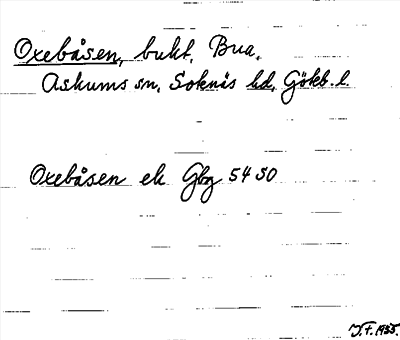 Oxebåsen, bukt, Bua.
Askums sn, Soknäs hd, Göteb. l.
Oxebåsen ek Gbg 5450
J.F. 1955.